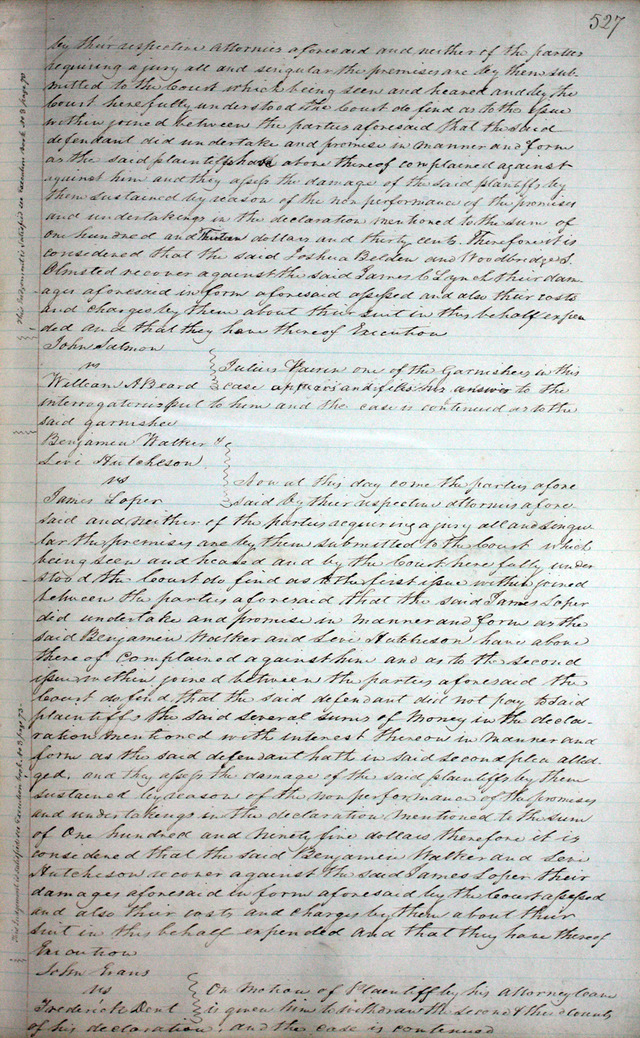 527
by their respective attornies aforesaid and neither of the parties
requiring a jury all and singular the premises are by them sub-
mitted to the Court which being seen and heared and by the
Court here fully understood the Court do find as to the issue
within joined between the parties aforesaid that the said
defendant did undertake and promise in manner and form
as the said plaintiffs have above thereof complained against
against him and they assess the damage of the said plaintiffs by
them sustained by reason of the non performance of the promises
and undertakings in the declaration mentioned to the sum of
one hundred and thirteen dollars and thirty cents. Therefore it is
considered that the said Joshua Belden and Woodbridge S.
Olmsted recover against the said James C Lynch their dam-
ages aforesaid in form aforesaid assessed and also their costs
and charges by them about their suit in this behalf expen
ded and that they have thereof Execution
John Salmon
vs
Julius one of the Garnishees in this
William A Beard case appears and files his answer to the
interrogatories put to him and the case is continued as to the
said garnishee
Benjamin Walker &
Levi Hutcheson
vs
Now at this day come the parties afore
James Loper said by thier respective attornies afore-
said and neither of the parties requiring a jury all and singu-
lar the premises are by them submitted to the Court which
being seen and heared and by the Court here fully under
stood the Court do find as to the first issue within joined
between the parties aforesaid that the said James Loper
did undertake and promise in manner and form as the
said Benjamin Walker and Levi Hutcheson have above
there of Complained against him and as to the second
issue within joined between the parties aforesaid the
Court do find that the said defendant did not pay to said
plaintiffs the said several sums of Money in the decla-
ration mentioned with interest thereon in manner and
form as the said defendant hath in said second plea alled-
ged. and they assess the damage of the said plaintiffs by them
sustained by reason of the nonperformance of the promises
and undertakings in the declaration mentioned to the sum
of One hundred and ninety five dollars therefore it is
considered that the said Benjamin Walker and Levi
Hutcheson recover against the said James Loper their
damages aforesaid in form aforesaid by the Court assessed
and also their costs and charges by them about their
suit in this behalf expended and that they have thereof
Execution
John Evans
vs
On motion of Plaintiff by his attorney leave
Frederick Dent is given him to withdraw the second & third counts
of his declaration. and the case is continued
This Judgement is satisfied see Execution book No 3 page
This Judgement is satisfied see Execution book No 3 page 73